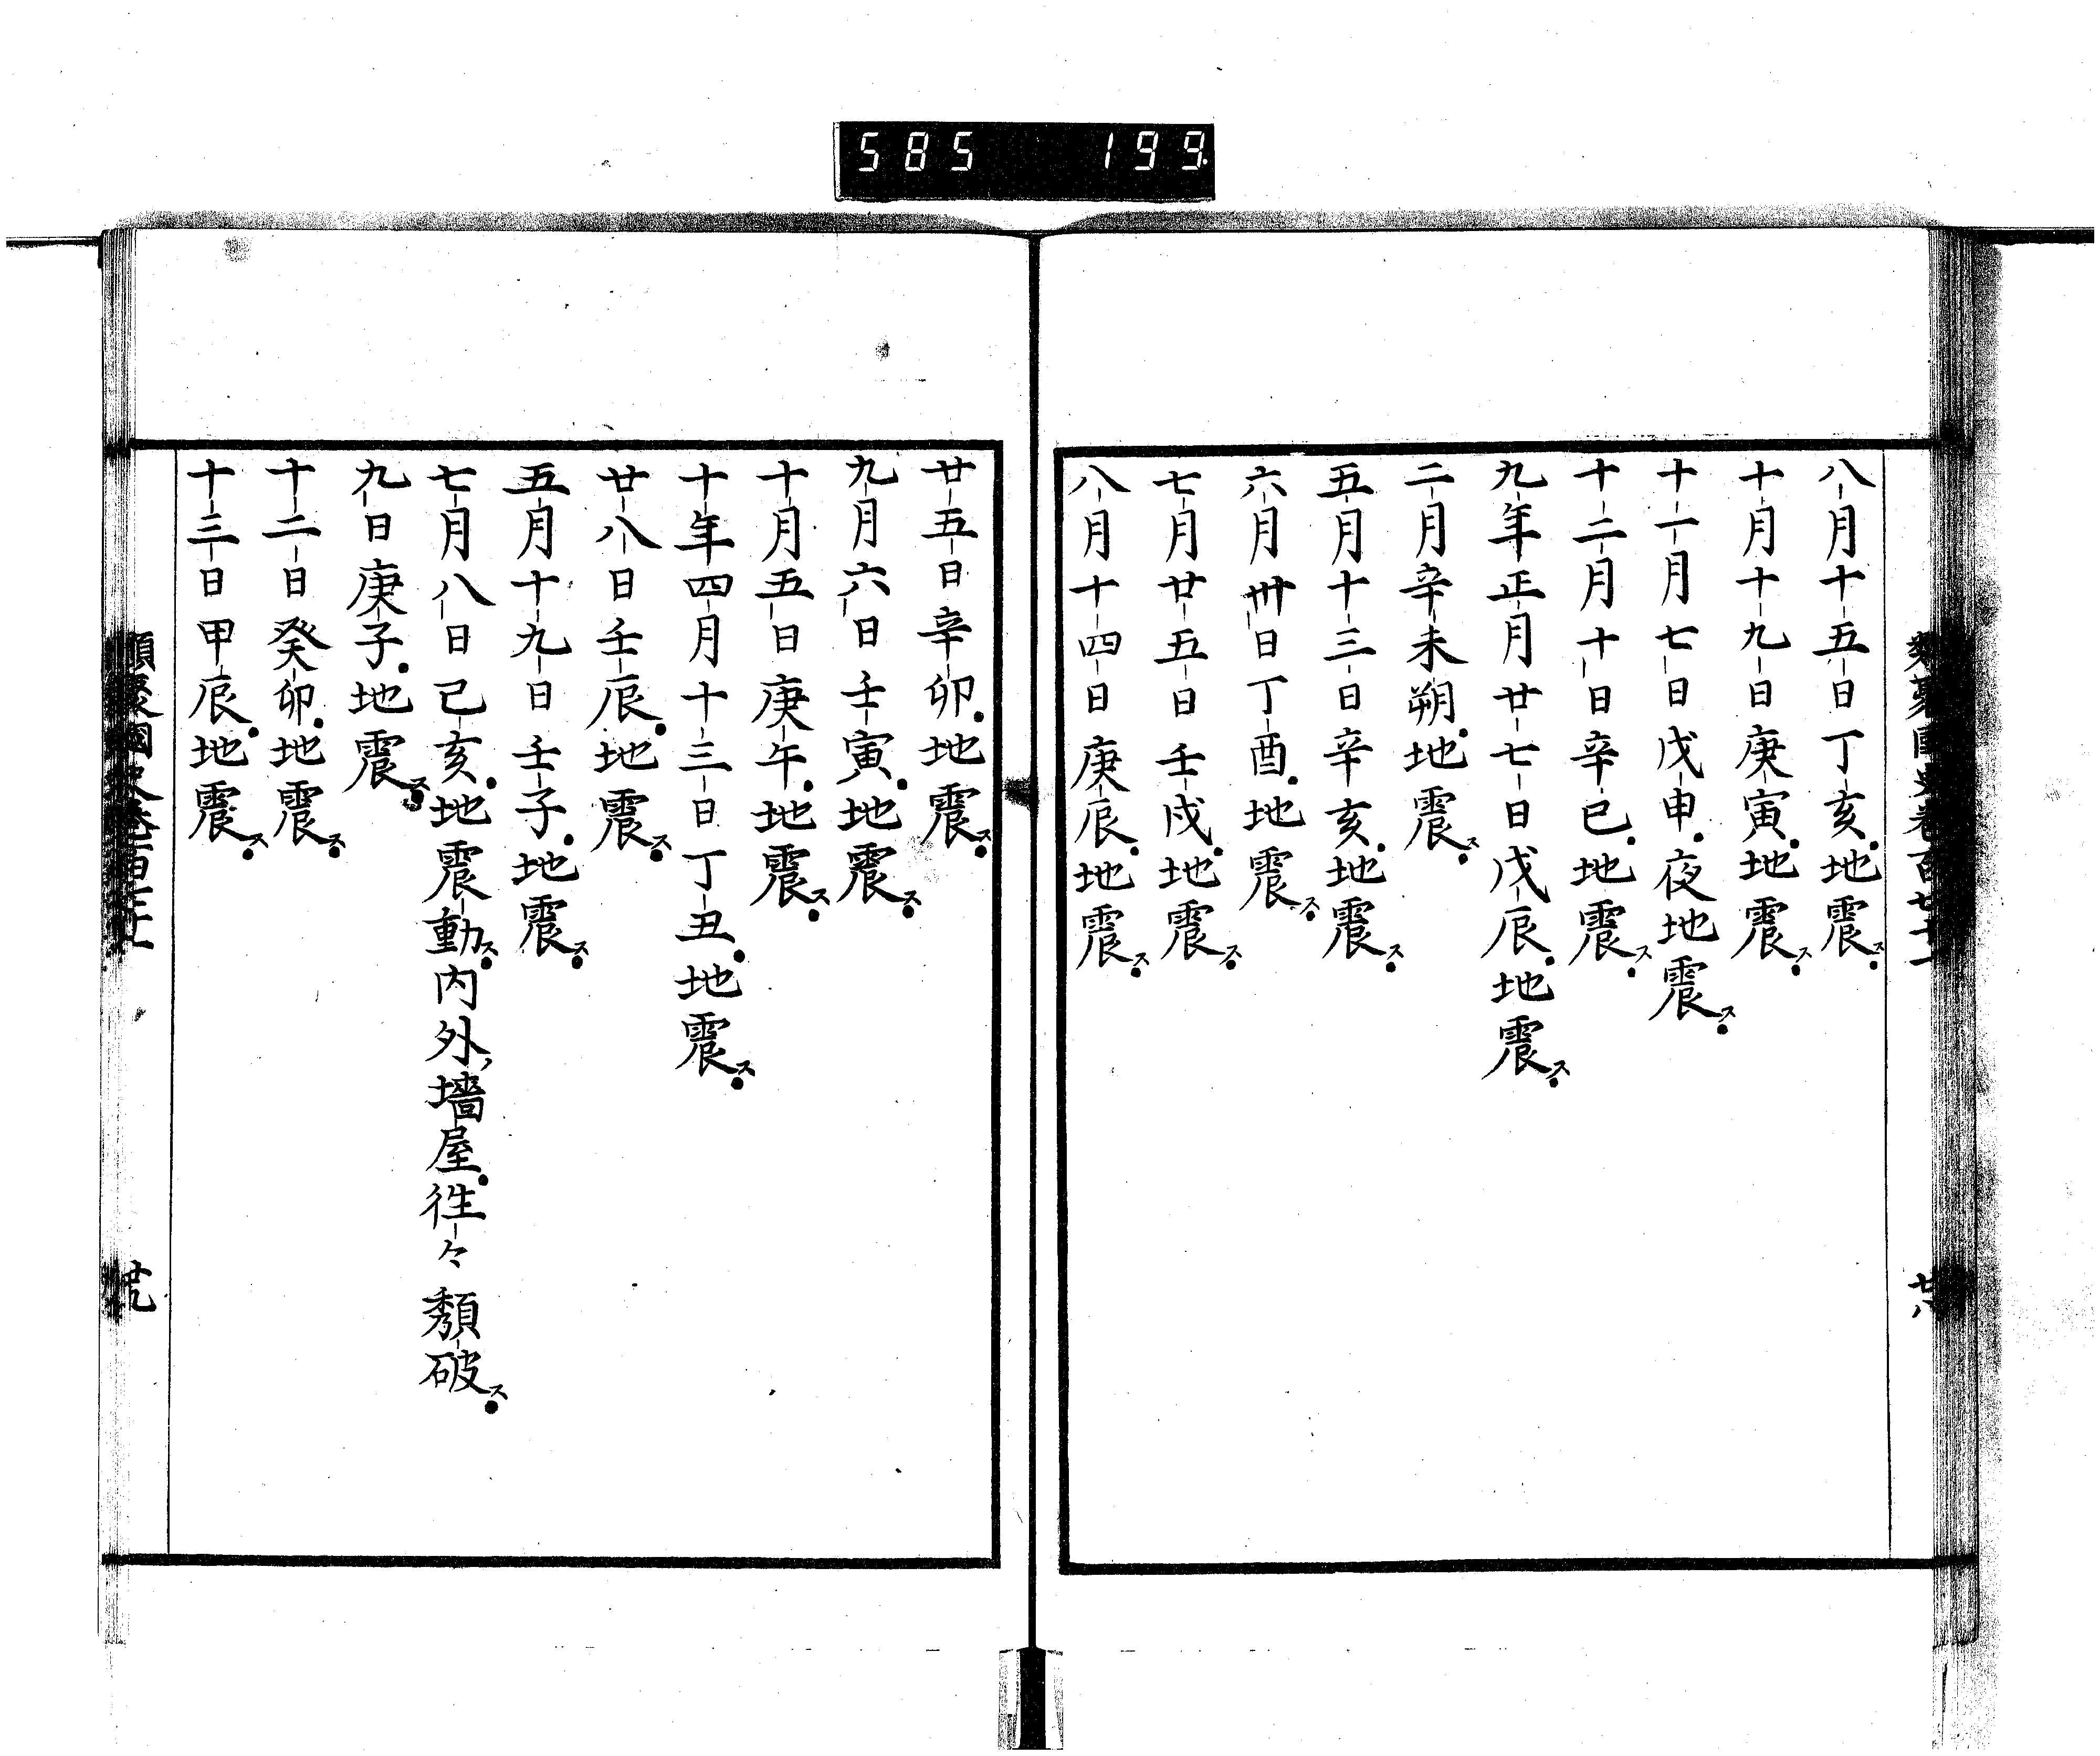 585 199
八月十五日丁亥地震ス
十月十九日庚寅地震ス
十一月七日戊申夜地震ス
十二月十日辛巳地震ス
九年正月廿七日戊辰地震ス
二月辛未朔地震ス
五月十三日辛亥地震ス
六月卅日丁酉地震ス
七月廿五日壬戌地震ス
八月十四日庚辰地震ス
廿五日辛卯地震ス
九月六日壬寅地震ス
十月五日庚午地震ス
十年四月十三日丁丑地震ス
廿八日壬辰地震ス
五月十九日壬子地震ス
七月八日己亥地震動ス内外墻屋往々頽破ス
九日庚子地震ス
十二日癸卯地震ス
十三日甲辰地震ス